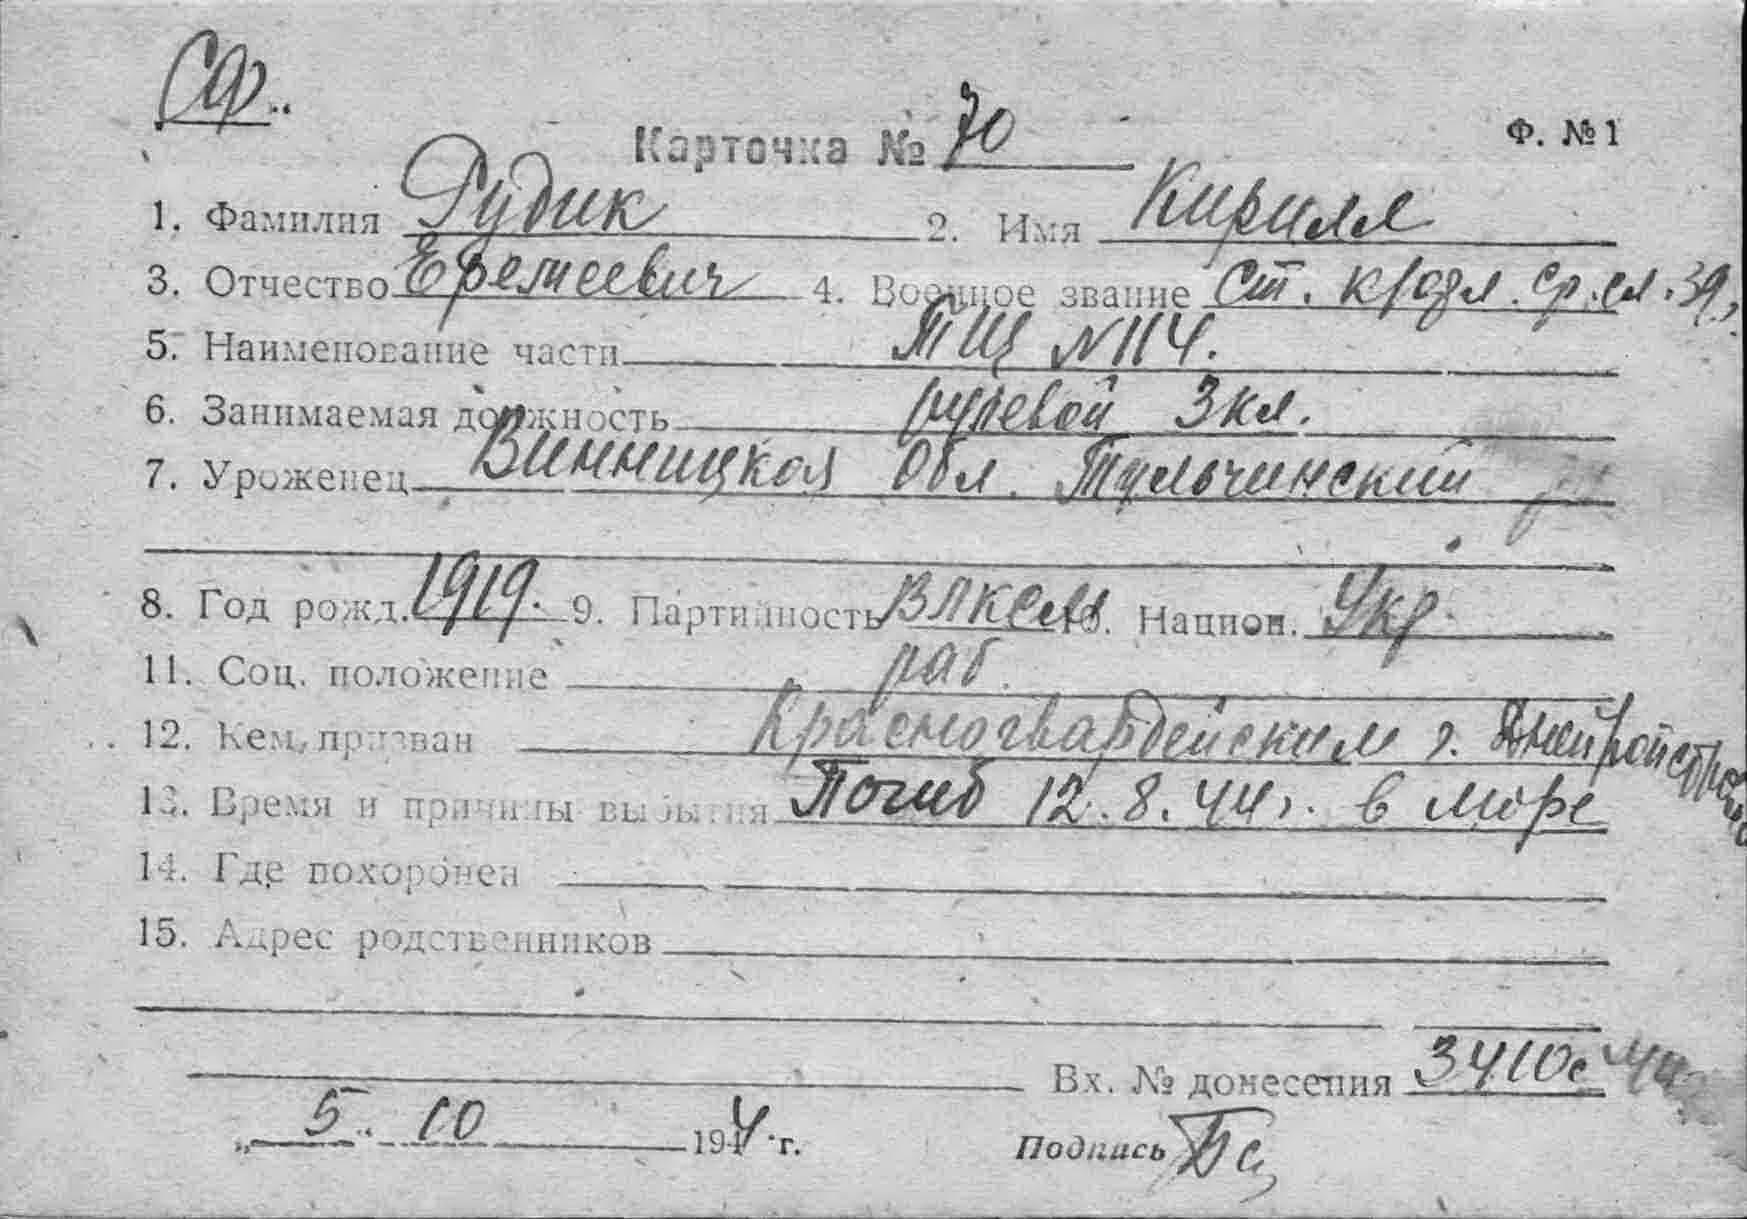 СФ..
Карточка № 70
Ф. № 1
1. Фамилия Рудик 2. Имя Кирилл
3. Отчество Еремеевич 4. Военное звание Ст. кр/озл. ср. сл. 39 г.
5. Наименование части ТЩ N 114.
6. Занимаемая должность рулевой 3 кл.
7. Уроженец Винницкая Обл. Тульчинский
8. Год рожд. 1919. 9. Партийность ВЛКСМ 10. Национ. Укр
11. Соц. положение раб.
12. Кем призван Красногвардейским г.
13. Время и причины выбытия Погиб 12.8.44 г. в море
14. Где похоронен
15. Адрес родственников
Вх. № донесения 3410с
„ 5 " 10 1944 г. Подпись